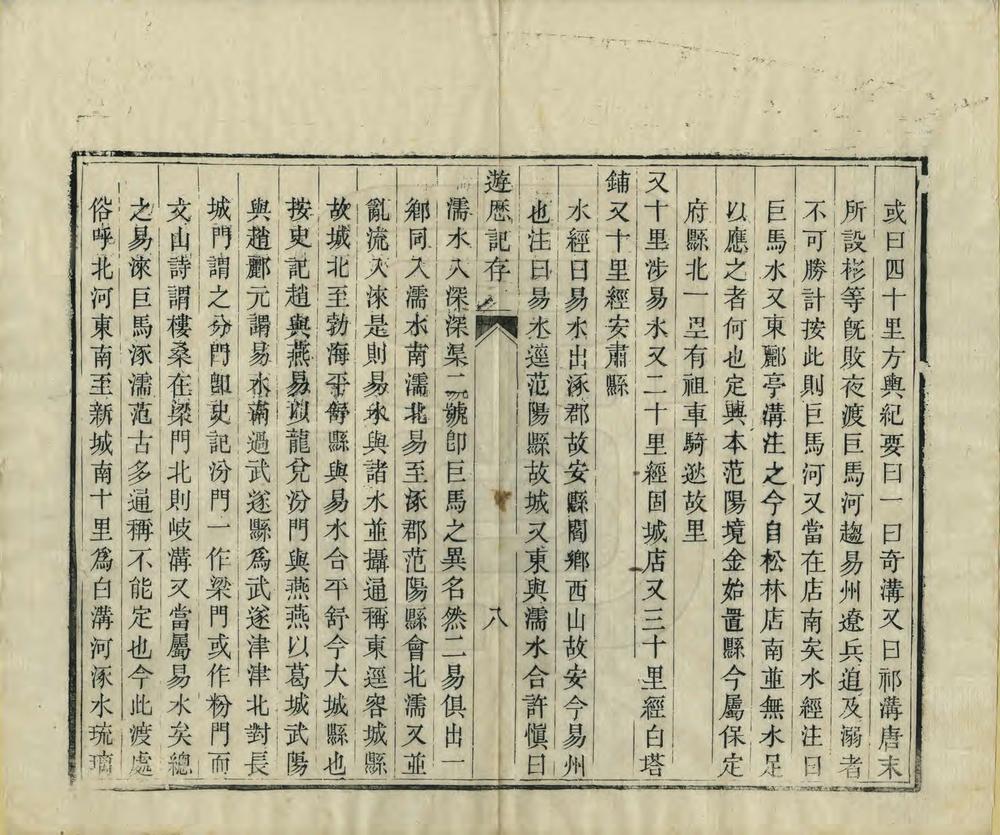 或曰四十里方輿紀要曰一曰奇溝又曰祁溝唐末
所設彬等旣敗夜渡巨馬河趨易州遼兵追及溺者
不可勝計按此則巨馬河又當在店南矣水經注曰
巨馬水又東酈亭溝注之今自松林店南並無水足
以應之者何也定興本范陽境金始置縣今屬保定
府縣北一里有祖車騎逖故里
又十里涉易水又二十里經固城店又三十里經白塔
鋪又十里經安肅縣
水經曰易水出涿郡故安縣閻鄉西山故安今易州
也注曰易水逕范陽縣故城又東與濡水合許愼曰
遊歷記存
八
濡水入深深渠二號卽巨馬之異名然二易俱出一
鄉同入濡水南濡北易至涿郡范陽縣會北濡又並
亂流入淶是則易水與諸水並攝通稱東逕容城縣
故城北至勃海平舒縣與易水合平舒今大城縣也
按史記趙與燕易以龍兌汾門與燕燕以葛城武陽
與趙酈元謂易水南過武遂縣爲武遂津津北對長
城門謂之汾門卽史記汾門一作梁門或作粉門而
文山詩謂樓桑在梁門北則岐溝又當屬易水矣總
之易淶巨馬涿濡范古多通稱不能定也今此渡處
俗呼北河東南至新城南十里爲白溝河涿水琉璃